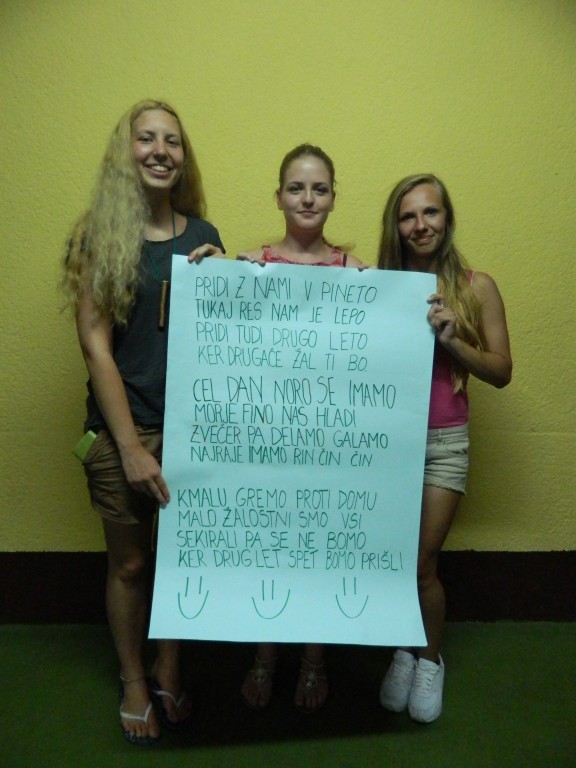 PRIDI Z NAMI V PINETO
TUKAJ RES NAM JE LEPO
PRIDI TUDI DRUGO LETO
KER DRUGAČE ŽAL TI BO.
CEL DAN NORO SE IMAMO
MORJE FINO NAS HLADI
ZVEČER PA DELAMO GALAMO
NAJRAJE IMAMO RIN ČIN ČIN
KMALU GREMO PROTI DOMU
MALO ŽALOSTNI SMO VSI
SEKIRALI PA SE NE BOMO
KER DRUG LET SPET BOMO PRIŠLI